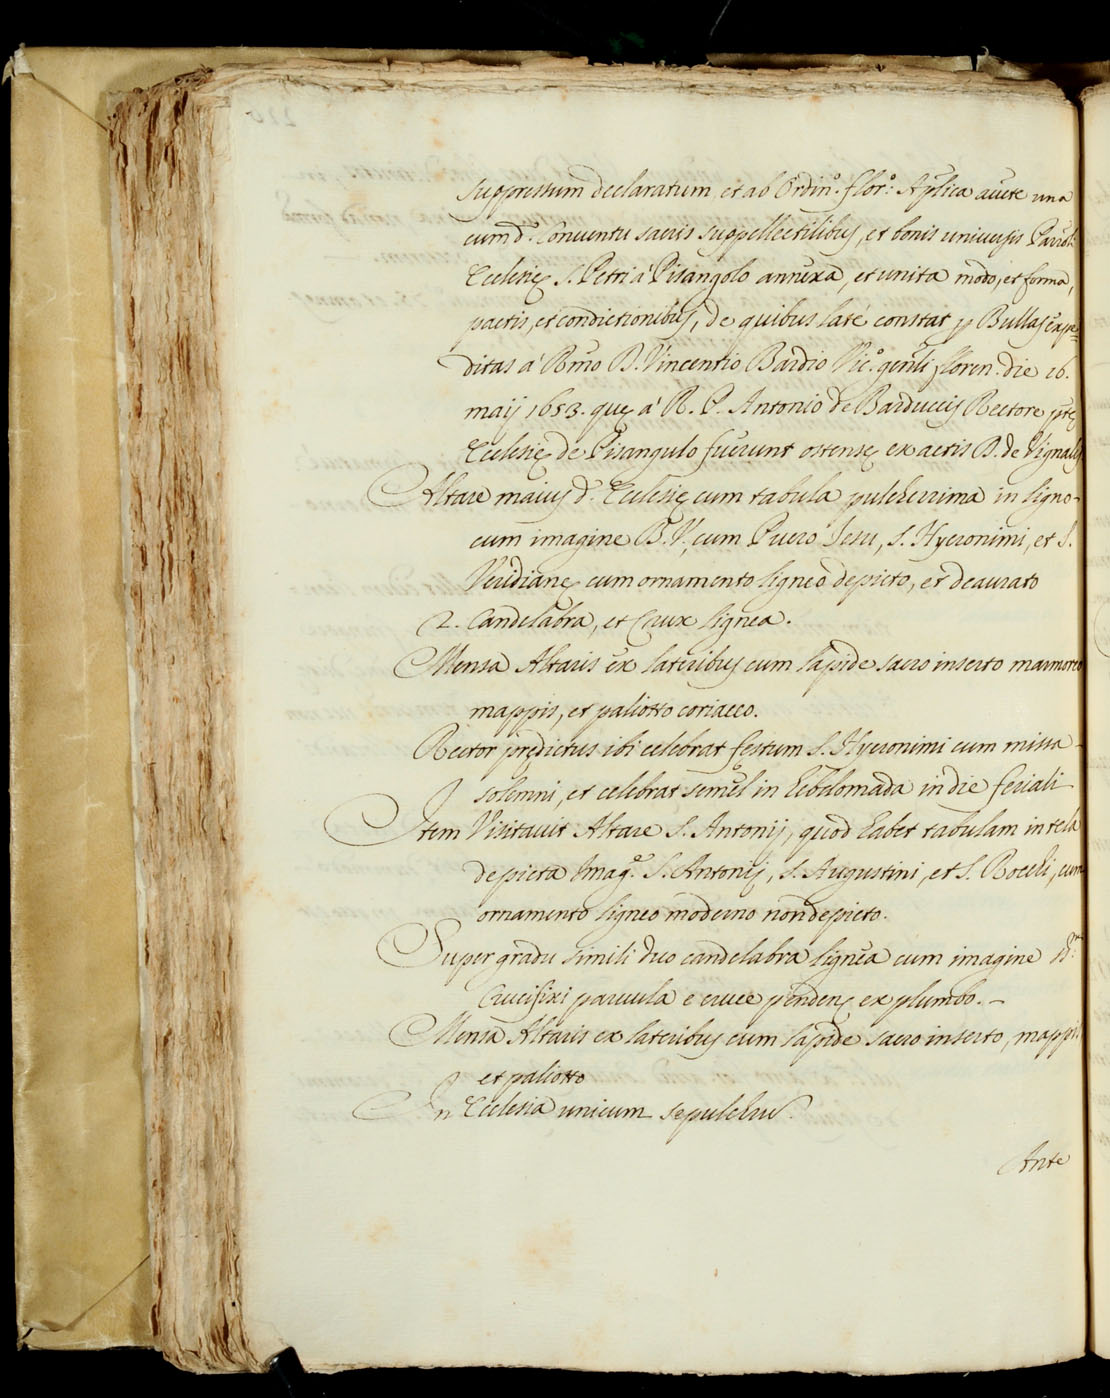 suppressum declaratum, et ab Ordin.º flor.º Aplica aucte una
cum d.º Conuentu sacris suppellectilibus, et bonis uniuersis Parroli
Ecclesię S. Petri à Pisangolo annexa, et unita modo, et forma,
pactis, et condictionibus, de quibus latè constat p Bullas expe=
ditas à Rmo D. Vincentio Bardio Vic.º gñli floren. die 16.
maij 1653. quę à R. P. Antonio de Barduccijs Rectore ptę
Ecclesię de Pisangulo fuerunt ostensę ex actis D. de Vignalij
Altare maius d.ę Ecclesię cum tabula pulcherrima in ligno
cum imagine B. V. cum Puero Jesu, S. Hyeronimi, et S.
Veridianę cum ornamento ligneo depicto, et deaurato
2. Candelabra, et Crux lignea.
Mensa Altaris ex lateribus cum lapide sacro inserto marmoreo
mappis, et paliotto coriaceo.
Rector prędictus ibi celebrat festum S. Hyeronimi cum missa
solemni, et celebrat semel in hebdomada in die feriali
Item Visitauit Altare S. Antonij, quod habet tabulam in tela
depicta Imag.e S. Antonij, S. Augustini, et S. Rocchi, cum
ornamento ligneo moderno non depicto.
Super gradu simili duo candelabra lignea cum imagine
Crucifixi paruula e cruce pendens ex plumbo.
Mensa Altaris ex lateribus cum lapide sacro inserto, mappis
et paliotto
In Ecclesia unicum sepulchru.
Ante